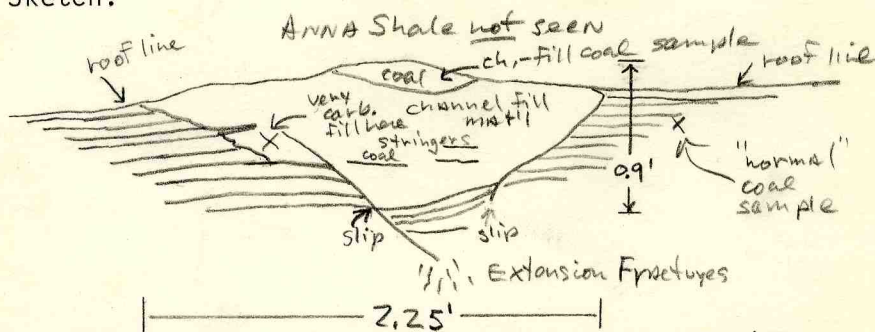 Sketch:
ANNA Shale not seen
roof line
coal
ch,-fill coal sample
roof line
very
carb.
fill here
channel fill
mat'l
stringers
coal
X
X
0.9'
"normal"
coal
sample
slip
slip
Extension Fractures
2.25'